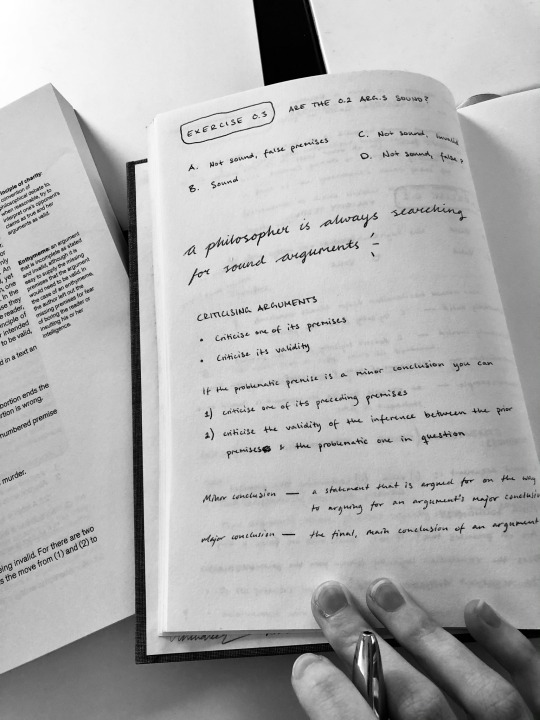 EXERCISE 0.3
ARE THE 0.2 ARG.S SOUND?
A. Not sound, false premises
B. Sound
C. Not sound, invalid
D. Not sound, false ?
a philosopher is always searching
for sound arguments
CRITICISING ARGUMENTS
• Criticise one of its premises
• Criticise its validity
If the problematic premise is a minor conclusion you can
1) criticise one of its preceding premises
2) criticise the validity of the inference between the prior
premises & the problematic one in question
Minor conclusion — a statement that is argued for on the way
to arguing for an argument's major conclusion
Major conclusion — the final, main conclusion of an argument
principle of charity
convention of
philosophical debate to,
when reasonable, try to
interpret one's opponent's
claims as true and her
arguments as valid.
Enthymeme: an argument
that is incomplete as stated
and invalid, although it is
easy to supply the missing
premises that the argument
would need to be valid. In
the case of an enthymeme,
the author left out the
missing premises for fear
of boring the reader or
insulting his or her
intelligence.
d in a text an
bortion ends the
rtion is wrong.
numbered premise
murder.
ing invalid. For there are two
s the move from (1) and (2) to